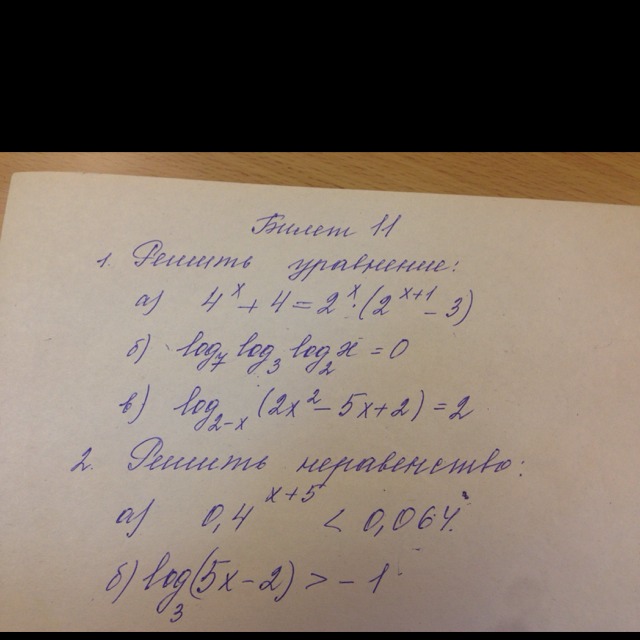 Билет 11
1. Решить уравнение:
а) 4^x + 4 = 2^x · (2^{x+1} - 3)
б) log_7 log_3 log_2 x = 0
в) log_{2-x} (2x^2 - 5x + 2) = 2
2. Решить неравенство:
а) 0,4^{x+5} < 0,064.
б) log_3 (5x - 2) > -1